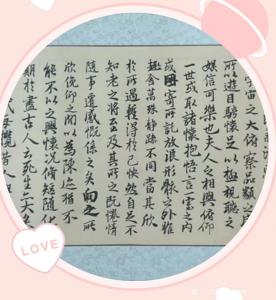 宇宙之大俯察品類之
所以遊目騁懷足以極視聽之
娛信可樂也夫人之相與俯仰
一世或取諸懷抱悟言一室之內
或因寄所託放浪形骸之外雖
趣舍萬殊靜躁不同當其欣
於所遇暫得於己怏然自足不
知老之將至及其所之既惓情
隨事遷感慨係之矣向之所
欣俛仰之閒以為陳迹猶不
能不以之興懷況脩短隨化
期於盡古人云死生亦大矣
每攬昔人
LOVE